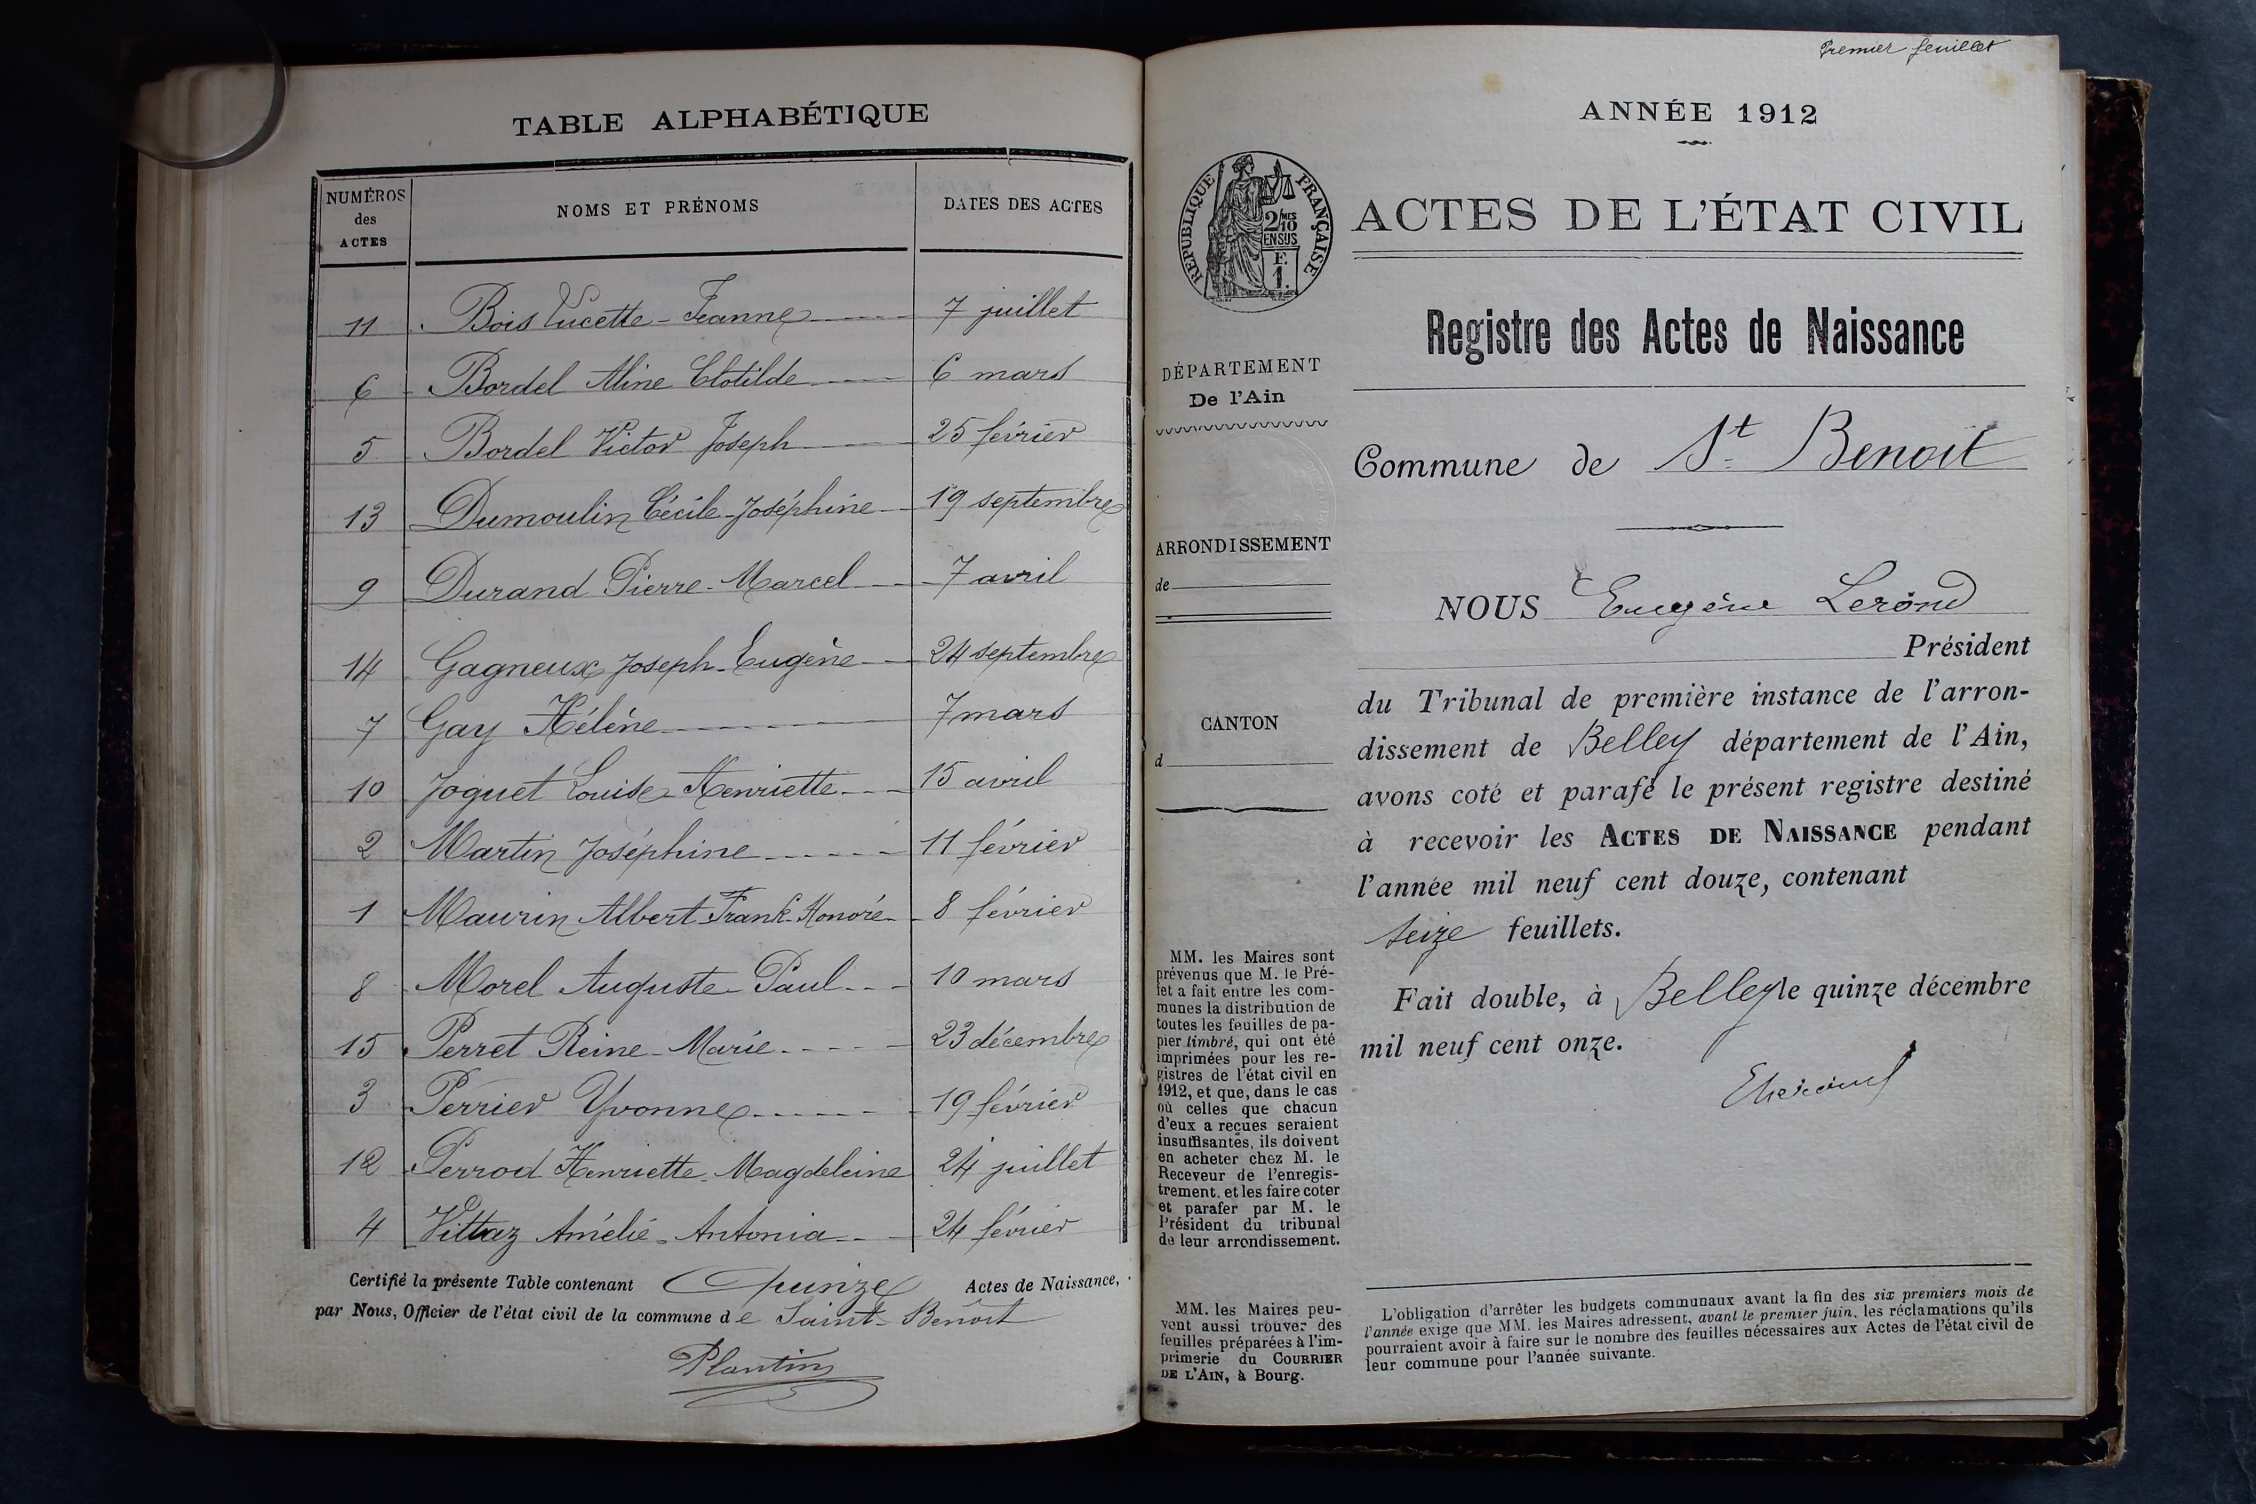 TABLE ALPHABÉTIQUE
NUMÉROS des ACTES NOMS ET PRÉNOMS DATES DES ACTES
11 Bois Lucette-Jeanne 7 juillet
6 Bordel Aline Clotilde 6 mars
5 Bordel Victor Joseph 25 février
13 Dumoulin Cécile-Joséphine 19 septembre
9 Durand Pierre-Marcel 7 avril
14 Gagneux Joseph-Eugène 24 septembre
7 Gay Hélène 7 mars
10 Joguet Louise-Henriette 15 avril
2 Martin Joséphine 11 février
1 Maurin Albert-Frank-Honoré 8 février
8 Morel Auguste-Paul 10 mars
15 Perret Reine-Marie 23 décembre
3 Perrier Yvonne 19 février
12 Perrod Henriette-Magdeleine 24 juillet
4 Vittaz Amélie-Antonia 24 février
Certifié la présente Table contenant Quinze Actes de Naissance,
par Nous, Officier de l'état civil de la commune de Saint-Benoit
Plantin
Premier feuillet
ANNÉE 1912
RÉPUBLIQUE FRANÇAISE
2/10 MES
EN SUS
F.
1.
ACTES DE L'ÉTAT CIVIL
Registre des Actes de Naissance
DÉPARTEMENT
De l'Ain
Commune de St Benoit
ARRONDISSEMENT
de
CANTON
d
NOUS Eugène Lerond
Président
du Tribunal de première instance de l'arron-
dissement de Belley département de l'Ain,
avons coté et parafé le présent registre destiné
à recevoir les ACTES DE NAISSANCE pendant
l'année mil neuf cent douze, contenant
seize feuillets.
Fait double, à Belley le quinze décembre
mil neuf cent onze.
MM. les Maires sont
prévenus que M. le Pré-
fet a fait entre les com-
munes la distribution de
toutes les feuilles de pa-
pier timbré, qui ont été
imprimées pour les re-
gistres de l'état civil en
1912, et que, dans le cas
où celles que chacun
d'eux a reçues seraient
insuffisantes, ils doivent
en acheter chez M. le
Receveur de l'enregis-
trement, et les faire coter
et parafer par M. le
Président du tribunal
de leur arrondissement.
MM. les Maires peu-
vent aussi trouver des
feuilles préparées à l'im-
primerie du COURRIER
DE L'AIN, à Bourg.
L'obligation d'arrêter les budgets communaux avant la fin des six premiers mois de
l'année exige que MM. les Maires adressent, avant le premier juin, les réclamations qu'ils
pourraient avoir à faire sur le nombre des feuilles nécessaires aux Actes de l'état civil de
leur commune pour l'année suivante.